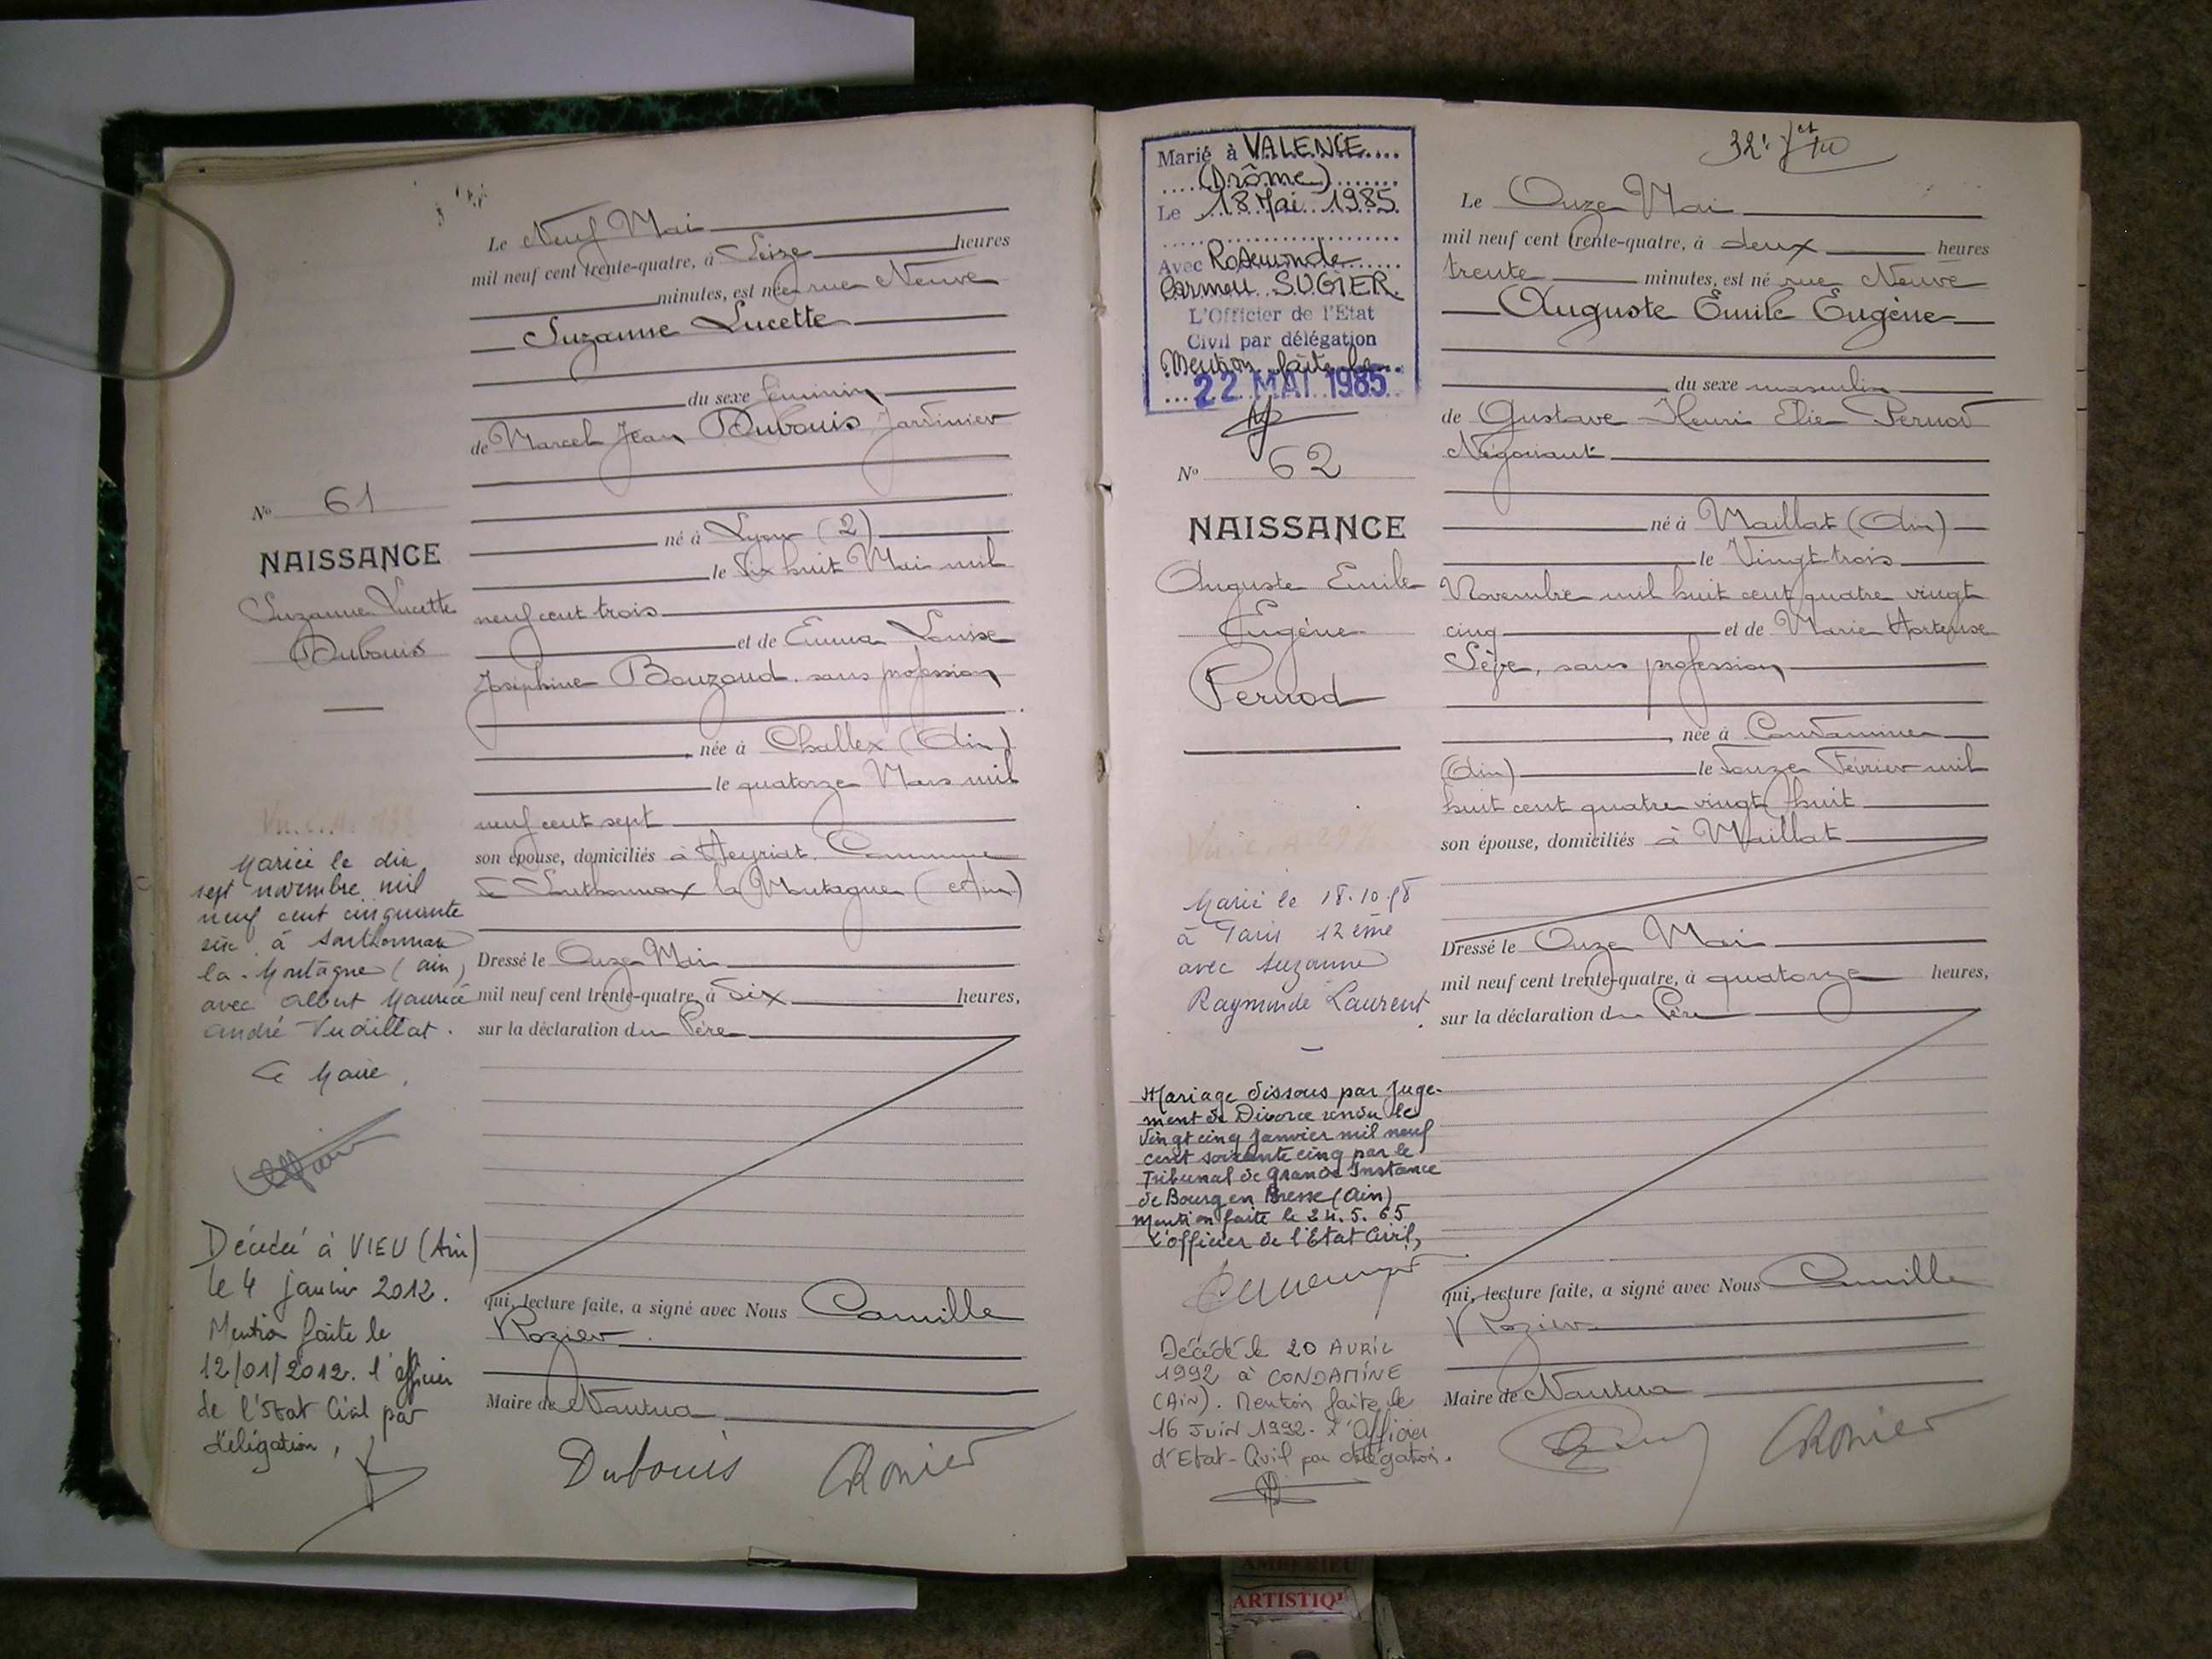 Le Neuf Mai
mil neuf cent trente-quatre, à Seize heures
minutes, est née rue Neuve
Suzanne Lucette
du sexe féminin
de Marcel Jean Dubouis Jardinier
né à Lyon (2)
le dix huit Mai mil
neuf cent trois
et de Emma Louise
Joséphine Bouzoud. sans profession
née à Challex (Ain)
le quatorze Mars mil
neuf cent sept
son épouse, domiciliés à Heyriat, Commune
de Sonthonnax la Montagne (Ain)
Dressé le Onze Mai
mil neuf cent trente-quatre, à dix heures,
sur la déclaration du Père
qui, lecture faite, a signé avec Nous Camille
Rozier
Maire de Nantua
Dubouis CRozier
No 61
NAISSANCE
Suzanne Lucette
Dubouis
Mariée le dix
sept novembre mil
neuf cent cinquante
six à Sonthonnax
la-Montagne (ain)
avec Albert Maurice
André Vudillat.
Le Maire,
Décédée à VIEU (Ain)
le 4 janvier 2012.
Mention faite le
12/01/2012. l'officier
de l'Etat Civil par
délégation,
Marié à VALENCE
(Drôme)
Le 18 Mai 1985
Avec Rosemonde
Carmen SUGIER
L'Officier de l'Etat
Civil par délégation
Mention faite le
22 MAI 1985
No 62
NAISSANCE
Auguste Emile
Eugène
Pernod
Marié le 18.10.58
à Paris 12ème
avec Suzanne
Raymonde Laurent
Mariage dissous par Juge-
ment de Divorce rendu le
Vingt cinq Janvier mil neuf
cent soixante cinq par le
Tribunal de Grande Instance
de Bourg en Bresse (Ain)
Mention faite le 24.5.65
L'officier de l'Etat Civil,
Décédé le 20 AVRIL
1992 à CONDAMINE
(AIN). Mention faite le
16 JUIN 1992. L'Officier
d'Etat-Civil par délégation.
32e
Le Onze Mai
mil neuf cent trente-quatre, à deux heures
trente minutes, est né rue Neuve
Auguste Emile Eugène
du sexe masculin
de Gustave Henri Elie Pernod
Négociant
né à Maillat (Ain)
le Vingt trois
Novembre mil huit cent quatre vingt
cinq et de Marie Hortense
Sève, sans profession
née à Condamine
(Ain) le douze Février mil
huit cent quatre vingt huit
son épouse, domiciliés à Maillat
Dressé le Onze Mai
mil neuf cent trente-quatre, à quatorze heures,
sur la déclaration du Père
qui, lecture faite, a signé avec Nous Camille
Rozier
Maire de Nantua
CRozier
AMBERIEU
ARTISTIQ